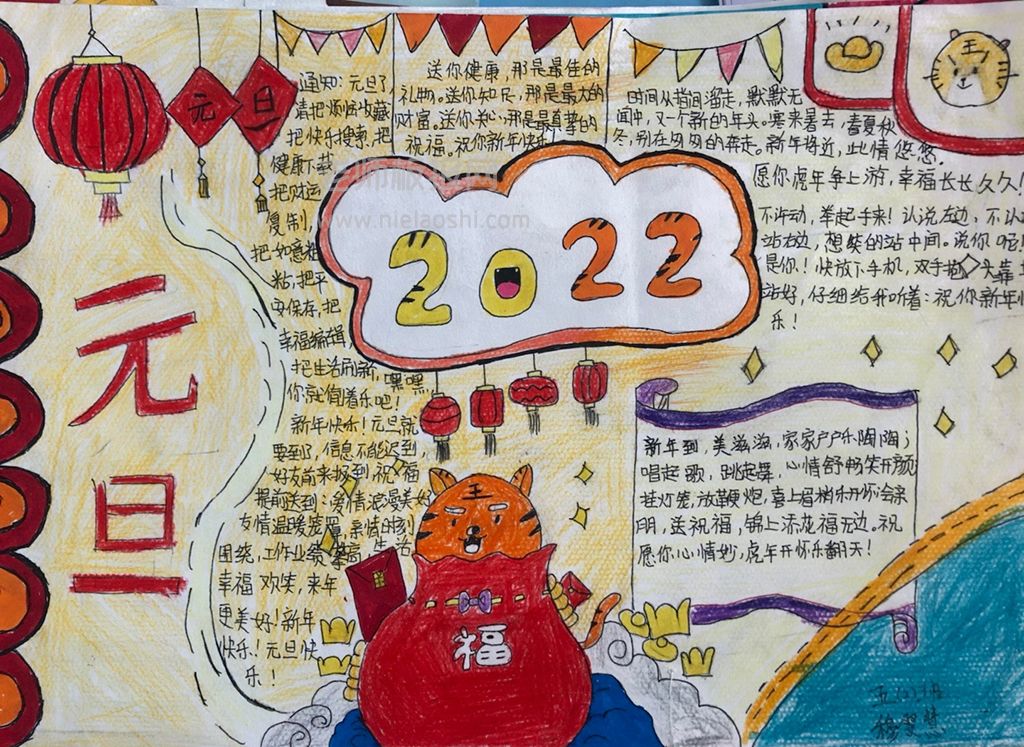 元
旦
通知:元旦了
请把烦恼收藏
把快乐搜索,把
健康下载
把财运
复制,
把如意粘
粘,把平
安保存,把
幸福编辑,
把生活刷新,嘿嘿,
你就偷着乐吧!
新年快乐!元旦就
要到了,信息不能迟到,
好友前来报到,祝福
提前送到:爱情浪漫美好
友情温暖笼罩,亲情时刻
围绕,工作业绩攀高,生活
幸福欢笑,来年
更美好!新年
快乐!元旦快
乐!
送你健康,那是最佳的
礼物。送你知足,那是最大的
财富。送你关心,那是最真挚的
祝福。祝你新年快乐!
时间从指间溜走,默默无
闻中,又一个新的年头。寒来暑去,春夏秋
冬,别在匆匆的奔走。新年将近,此情悠悠。
愿你虎年争上游,幸福长长久久!
不许动,举起手来!认说左边,不认
站右边,想笑的站中间。说你啦!
是你!快放下手机,双手抱头靠
站好,仔细给我听着:祝你新年快
乐!
王
www.nielaoshi.com
2022
元
旦
新年到,美滋滋,家家户户乐陶陶;
唱起歌,跳起舞,心情舒畅笑开颜
挂灯笼,放鞭炮,喜上眉梢乐开怀会亲
朋,送祝福,锦上添花福无边。祝
愿你心情妙,虎年开怀乐翻天!
王
福
五(2)班